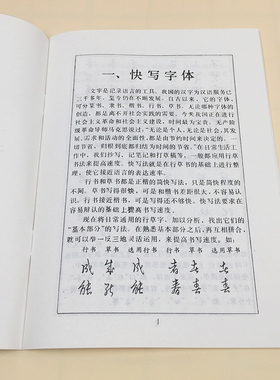 一、快写字体
文字是记录语言的工具。我国的汉字为汉语服务已
二千多年，至今仍在不断发展。自古以来，它的字体，
可分篆书、隶书、楷书、行书、草书。无论哪种字体的
创造，都是离不开社会实践的需要。今天我国正在进行
社会主义革命和社会主义建设，时间极为宝贵。无产阶
级革命导师马克思说过，“无论是个人，无论是社会，其发
展、需求和活动的全面性，都是由节约时间来决定的。一
切节省，归根到底都归结为时间的节省。”在日常生活工
作中，我们抄写、记笔记和打草稿等，一般都应用行草
书法来提高速度。快写法就是在行草书的基础上进行整
理，使它接近语言的表达速度。
行书和草书都是正楷的简快写法，只是简快程度的
不同。草书写得很快，可是和楷书差距很大，不容易认
识。行书接近楷书，可是写得还不够快。快写法要求在
容易辩认的基础上提高书写速度。
现在将日常通用的行草字，加以分析，找出它们的
“基本部分”的写法。在熟悉基本部分之后，再互相拼合，
就可以举一反三地灵活运用，来提高书写速度。如：
行书 草书 选用行书 行书 草书 选用草书
成 成 成 者 者 者
能 能 能 喜 喜 喜
1